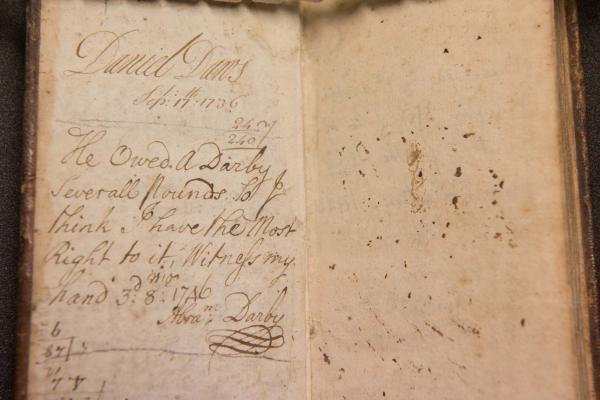 Daniel Daws
Sep: 1st: 1736
247
240
He Owed A Darby
Severall Pounds So I
think I have the Most
Right to it, Witness my
hand 3d: 8: mo 1746
Abram: Darby
6